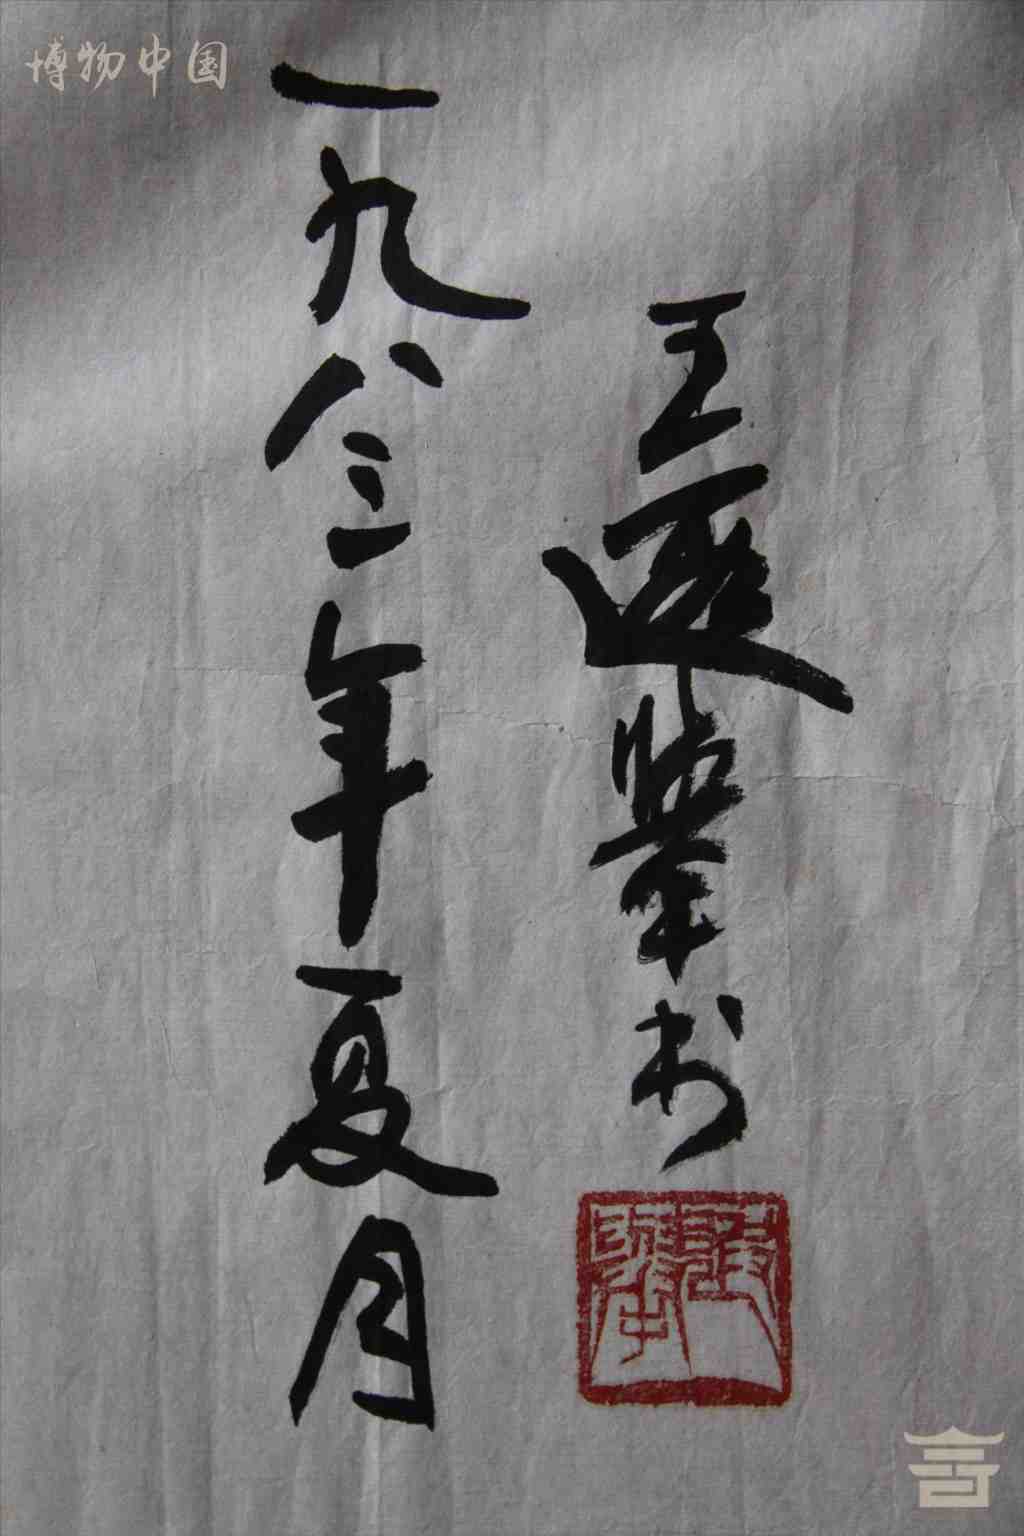 博物中国
王遐举书
一九八三年夏月